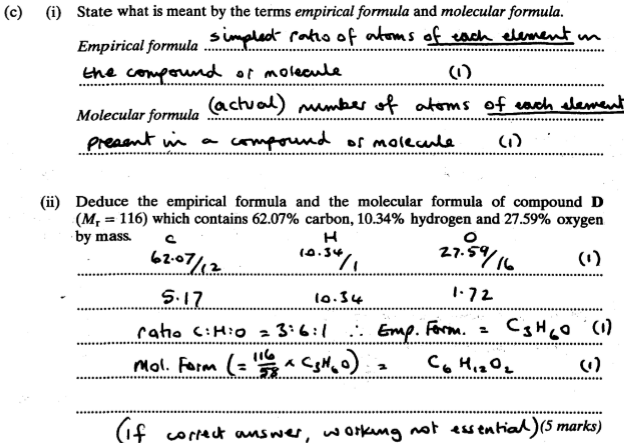 (c) (i) State what is meant by the terms empirical formula and molecular formula.
Empirical formula simplest ratio of atoms of each element in
the compound or molecule (1)
Molecular formula (actual) number of atoms of each element
present in a compound or molecule (1)
(ii) Deduce the empirical formula and the molecular formula of compound D
(Mr = 116) which contains 62.07% carbon, 10.34% hydrogen and 27.59% oxygen
by mass. C H O
62.07/12 10.34/1 27.59/16 (1)
5.17 10.34 1.72
ratio C:H:O = 3:6:1 ∴ Emp. Form. = C3H6O (1)
Mol. Form (= 116/58 × C3H6O) = C6H12O2 (1)
(if correct answer, working not essential) (5 marks)